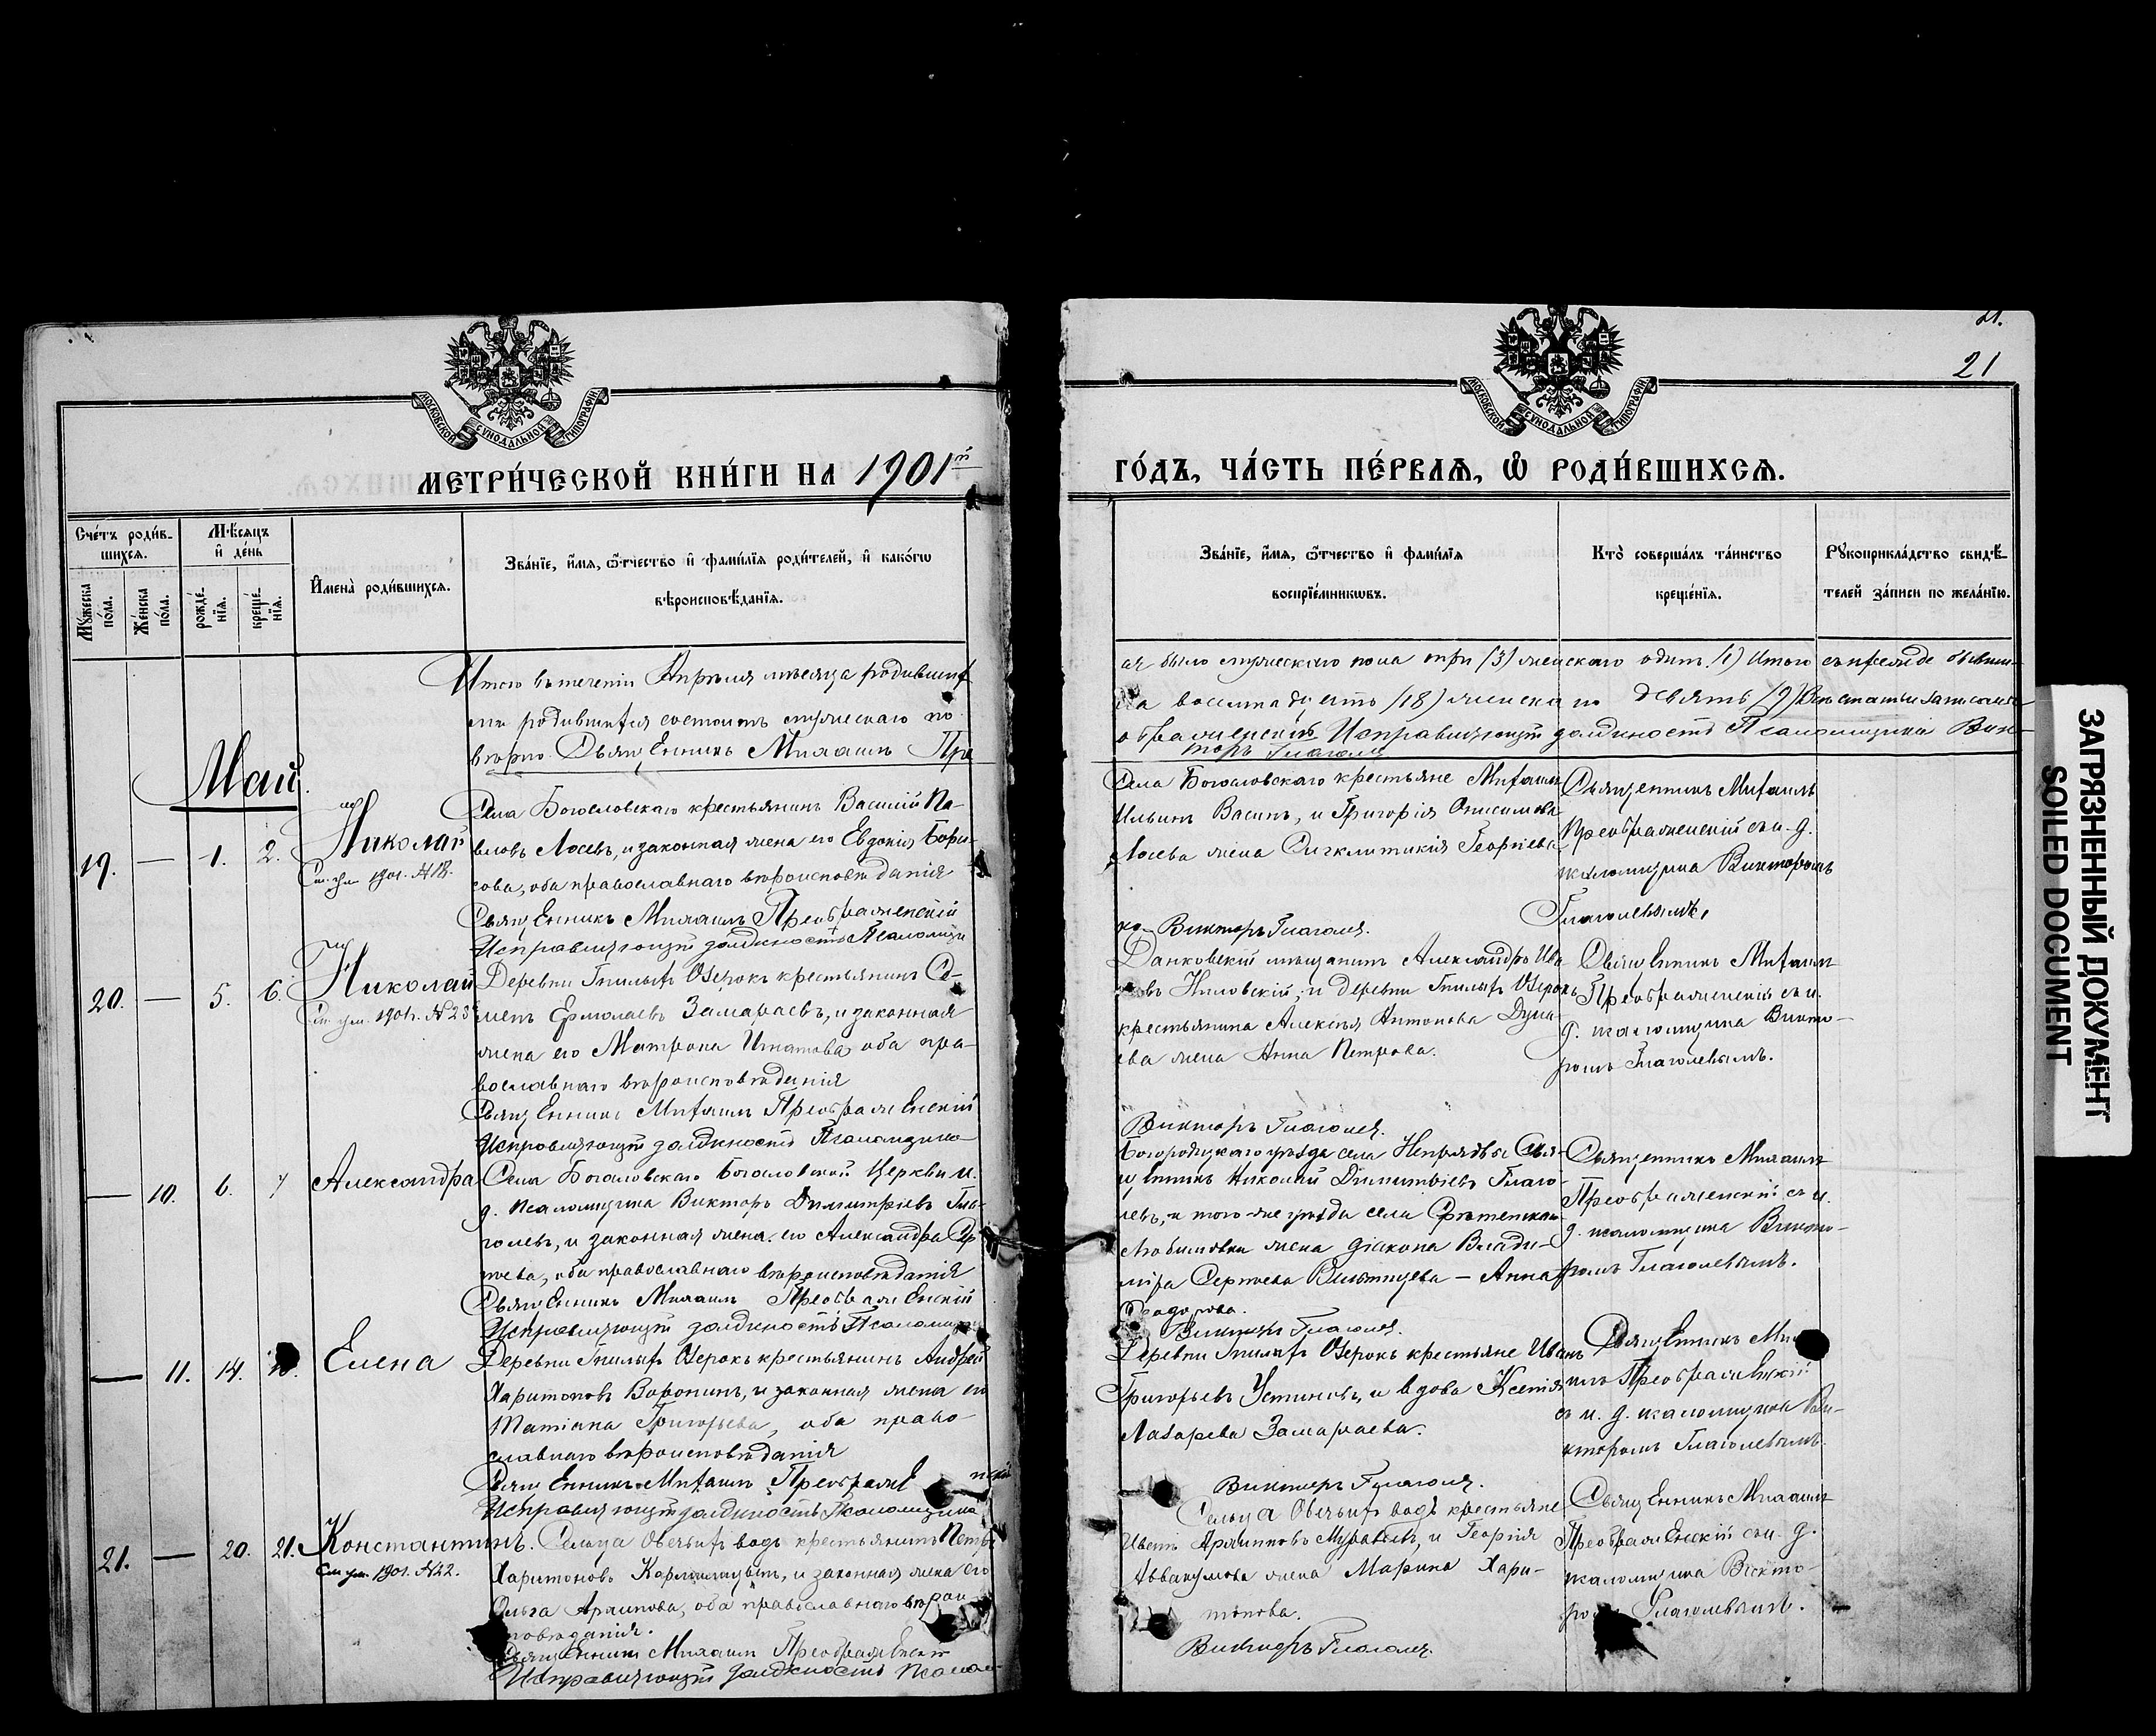 21.
21
МОСКОВСКОЙ СѴНОДАЛЬНОЙ ТИПОГРАФИИ
МОСКОВСКОЙ СѴНОДАЛЬНОЙ ТИПОГРАФИИ
МЕТРИ́ЧЕСКОЙ КНИ́ГИ НА 1901й
ГО́ДЪ, ЧА́СТЬ ПЕ́РВАѦ, Ѡ҆ РОДИ́ВШИХСѦ.
Сче́тъ роди́в-
шихсѧ.
Мꙋжеска по́ла.
Же́нска по́ла.
Мѣ́сѧцъ
и҆ де́нь
рожде́-
нїѧ.
креще́-
нїѧ.
И҆мена̀ роди́вшихсѧ.
Зва́нїе, и҆́мѧ, ѻ҆́тчество и҆ фами́лїѧ роди́телей, и҆ како́гѡ
вѣроисповѣ́данїѧ.
Зва́нїе, и҆́мѧ, ѻ҆́тчество и҆ фами́лїѧ
воспрїе́мникѡвъ.
Кто̀ соверша́лъ та́инство
креще́нїѧ.
Рꙋкоприкла́дство свидѣ́-
телей за́писи по жела́нїю.
Итого въ теченіи Апрѣля мѣсяца родивших
ся было мужескаго пола три /3/ женскаго одна /1/ Итого съ прежде бывши-
ми родившихся состоитъ мужескаго по-
ла восемнадцать /18/ женскаго девять /9/
вѣрно Священникъ Михаилъ Пре
ображенскій Исправляющій должность Псаломщика Вик-
торъ Глаголев
Май.
19. — 1. 2. Николай
1901. №18.
Села Богословскаго крестьянинъ Василій Па-
вловъ Лосевъ, и законная жена его Евдокія Бори-
сова, оба православнаго вѣроисповѣданія
Священникъ Михаилъ Преображенскій
Исправляющій должность Псаломщи
Села Богословскаго крестьяне Михаилъ
Ильинъ Васинъ, и Григорія Онисимова
Лосева жена Сигклитикія Георгіева
ка Викторъ Глаголев.
Священникъ Михаилъ
Преображенскій съ и. д.
псаломщика Викторомъ
Глаголевымъ.
20. — 5. 6. Николай
1901. №23
Деревни Гнилыхъ Озерокъ крестьянинъ Се-
менъ Ермолаевъ Замараевъ, и законная
жена его Матрона Игнатова оба пра-
вославнаго вѣроисповѣданія
Священникъ Михаилъ Преображенскій
Исправляющій должность Псаломщика
Данковскій мѣщанинъ Александръ Ива
новъ Ниловскій, и деревни Гнилыхъ Озерокъ
крестьянина Алексѣя Антонова
жена Анна Петрова.
Викторъ Глаголев.
Священникъ Михаилъ
Преображенскій съ и.
д. псаломщика Викто-
ромъ Глаголевымъ.
— 10. 6. 7 Александра
Села Богословскаго Богословской Церкви и.
д. псаломщика Викторъ Димитріевъ Гла-
голевъ, и законная жена его Александра Сер
гѣева, оба православнаго вѣроисповѣданія
Священникъ Михаилъ Преображенскій
Исправляющій должность Псаломщи
Богородицкаго уѣзда села Непрядвы Свя-
щенникъ Николай Димитріевъ Глаго-
левъ, и того же уѣзда села Срѣтенскаго
Любимовки жена діакона Влади-
міра Сергѣева — Анна
Ѳеодорова.
Викторъ Глаголев.
Священникъ Михаилъ
Преображенскій съ и.
д. псаломщика Викто-
ромъ Глаголевымъ.
— 11. 14. Елена
Деревни Гнилыхъ Озерокъ крестьянинъ Андрей
Харитоновъ Воронинъ, и законная жена его
Татіана Григорьева, оба право-
славнаго вѣроисповѣданія
Священникъ Михаилъ Преображенскій
Исправляющій должность Псаломщика
Деревни Гнилыхъ Озерокъ крестьяне Иванъ
Григорьевъ Устиновъ, и вдова Ксенія
Лазарева Замараева.
Викторъ Глаголев.
Священникъ Миха
илъ Преображенскій
съ и. д. псаломщика Ви-
кторомъ Глаголевымъ.
21. — 20. 21. Константинъ.
1901. №22.
Сельца Овечьихъ водъ крестьянинъ Петръ
Харитоновъ, и законная жена его
Ольга Архипова, оба православнаго вѣрои
сповѣданія.
Священникъ Михаилъ Преображенскій
Исправляющій должность Псалом
Сельца Овечьихъ водъ крестьяне
Иванъ Архиповъ Муравьевъ, и Георгія
Аввакумова жена Марина Хари-
тонова.
Викторъ Глаголев.
Священникъ Михаилъ
Преображенскій съ и. д.
псаломщика Викто-
ромъ Глаголевымъ.
ЗАГРЯЗНЕННЫЙ ДОКУМЕНТ
SOILED DOCUMENT